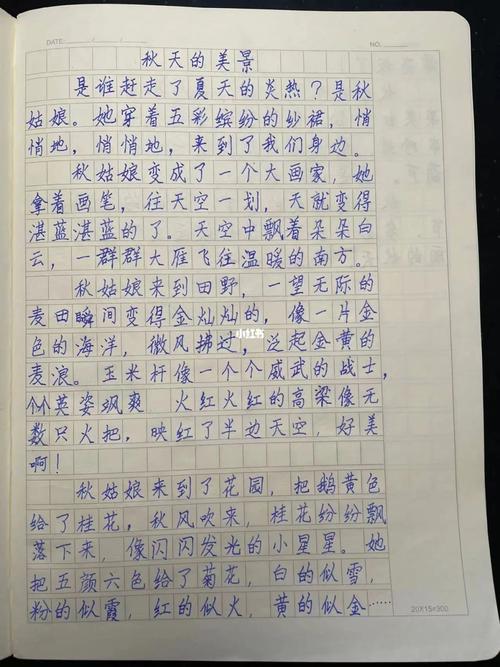 DATE: / /
NO.
秋天的美景
是谁赶走了夏天的炎热？是秋
姑娘。她穿着五彩缤纷的纱裙，悄
悄地，悄悄地，来到了我们身边。
秋姑娘变成了一个大画家，她
拿着画笔，往天空一划，天就变得
湛蓝湛蓝的了。天空中飘着朵朵白
云，一群群大雁飞往温暖的南方。
秋姑娘来到田野，一望无际的
麦田瞬间变得金灿灿的，像一片金
色的海洋，微风拂过，泛起金黄的
麦浪。玉米杆像一个个威武的战士，
个个英姿飒爽 火红火红的高粱像无
数只火把，映红了半边天空，好美
啊！
秋姑娘来到了花园，把鹅黄色
给了桂花，秋风吹来，桂花纷纷飘
落下来，像闪闪发光的小星星。她
把五颜六色给了菊花，白的似雪，
粉的似霞，红的似火，黄的似金……
20X15=300
小红书